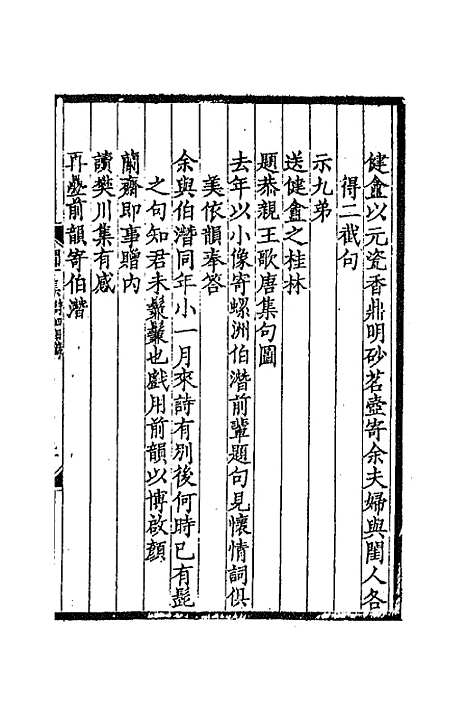 健盦以元瓷香鼎明砂茗壺寄余夫婦與閨人各
得二截句
示九弟
送健盦之桂林
題恭親王歌唐集句圖
去年以小像寄螺洲伯潛前輩題句見懷情詞俱
美依韻奉答
余與伯潛同年小一月來詩有别後何時已有髭
之句知君未鬑鬑也戲用前韻以博啟顏
蘭齋即事贈内
讀樊川集有感
再疊前韻寄伯潛